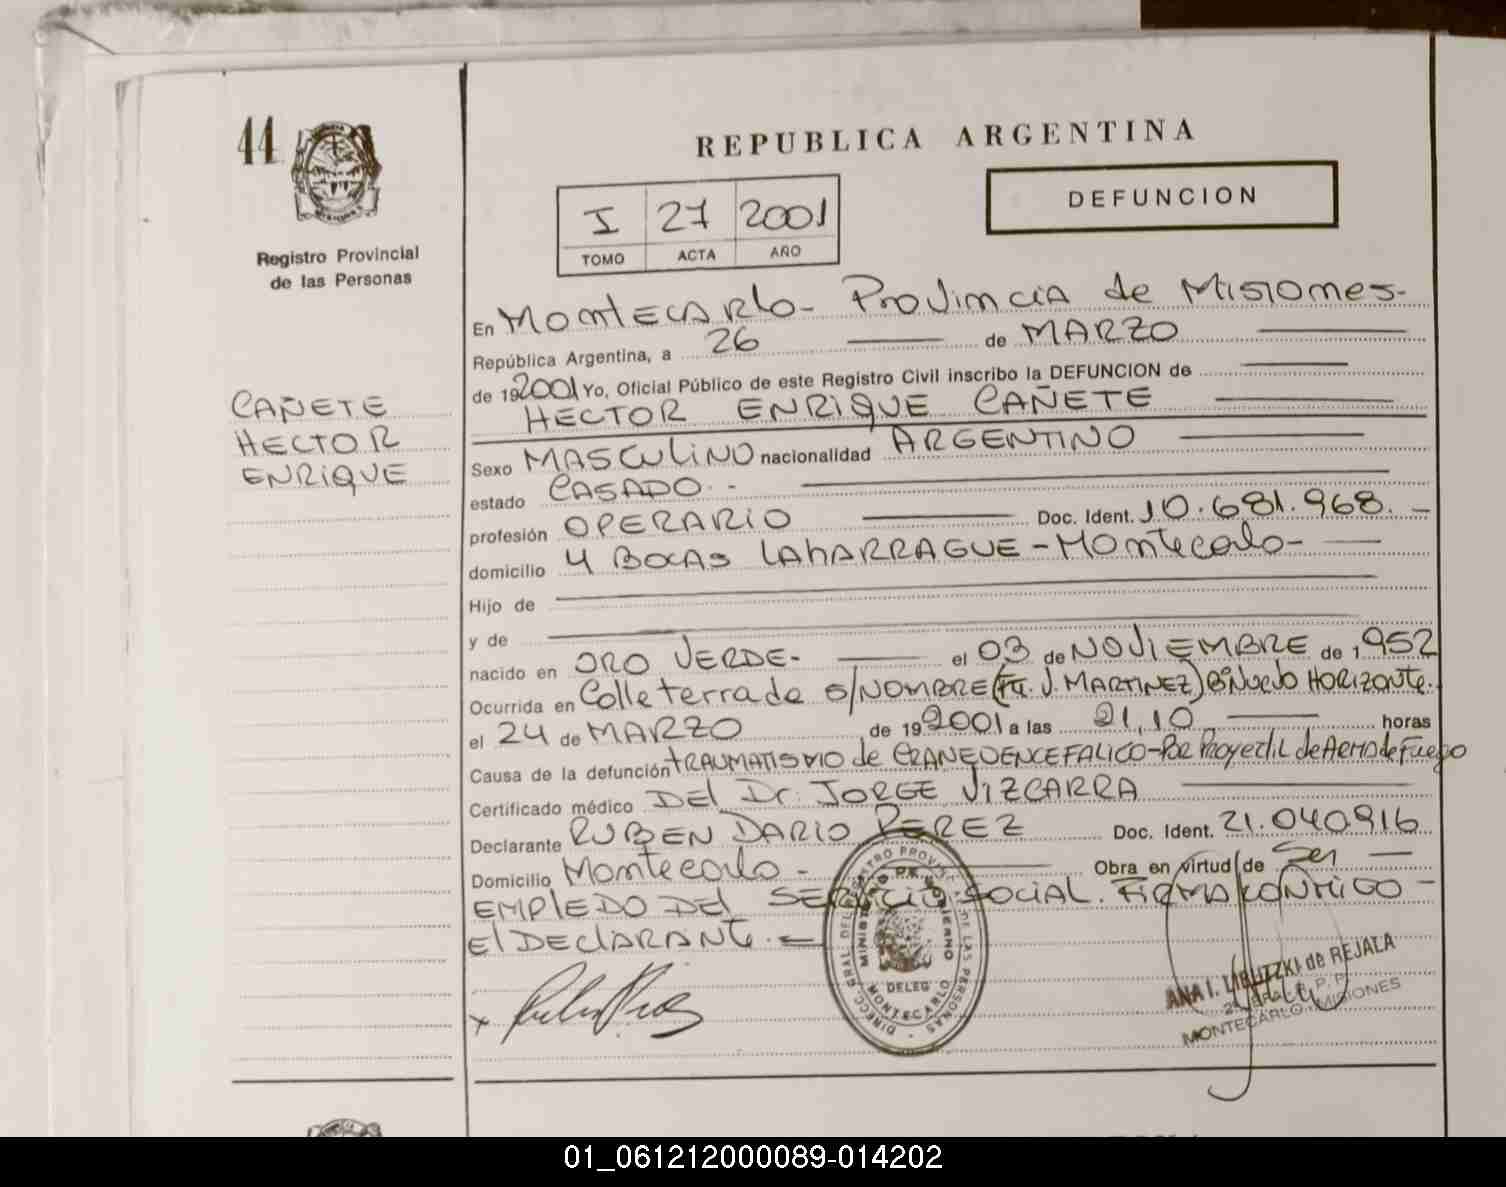 44
Registro Provincial
de las Personas
CAÑETE
HECTOR
ENRIQUE
REPUBLICA ARGENTINA
I 27 2001
TOMO ACTA AÑO
DEFUNCION
En Montecarlo - Provincia de Misiones-
República Argentina, a 26 de MARZO
de 192001 Yo, Oficial Público de este Registro Civil inscribo la DEFUNCION de
HECTOR ENRIQUE CAÑETE
Sexo MASCULINO nacionalidad ARGENTINO
estado CASADO.-
profesión OPERARIO Doc. Ident. 10.681.968.-
domicilio 4 BOCAS LAHARRAGUE - Montecarlo-
Hijo de
y de
nacido en ORO VERDE- el 03 de NOVIEMBRE de 1952
Ocurrida en Calle terrada S/NOMBRE (Fte. J. MARTINEZ) Bº Nuevo HORIZONTE.
el 24 de MARZO de 192001 a las 21,10 horas
Causa de la defunción TRAUMATISMO de CRANEOENCEFALICO - Por Proyectil de Arma de Fuego
Certificado médico Del Dr. JORGE VIZCARRA
Declarante RUBEN DARIO PEREZ Doc. Ident. 21.040.916
Domicilio Montecarlo - Obra en virtud de Ser
EMPLEDO DEL SERVICIO SOCIAL. FIRMA CONMIGO -
El DECLARANTE.-
DIRECC. GRAL DEL REGISTRO PROVINC. DE LAS PERSONAS
MINISTERIO DE GOBIERNO
DELEG
MONTECARLO
ANA I. LIBUTZKI de REJALA
MONTECARLO - MISIONES
01_061212000089-014202